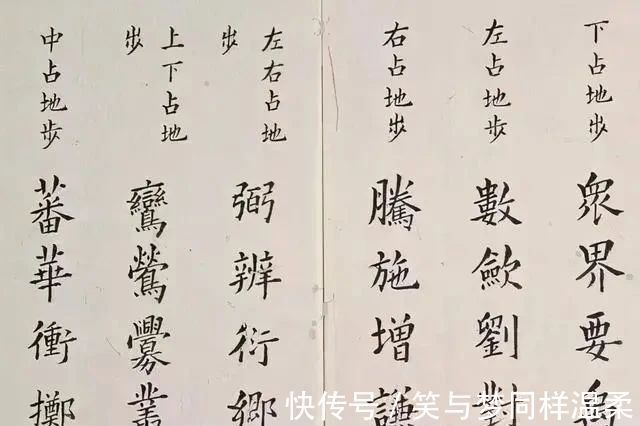 下占地步
眾界要
左占地步
數歛劉對
右占地步
騰施增謙
左右占地
步
弼辨衍鄉
上下占地
步
鸞鶯爨叢
中占地步
蕃華衝擲
快传号/笑与梦同样温柔